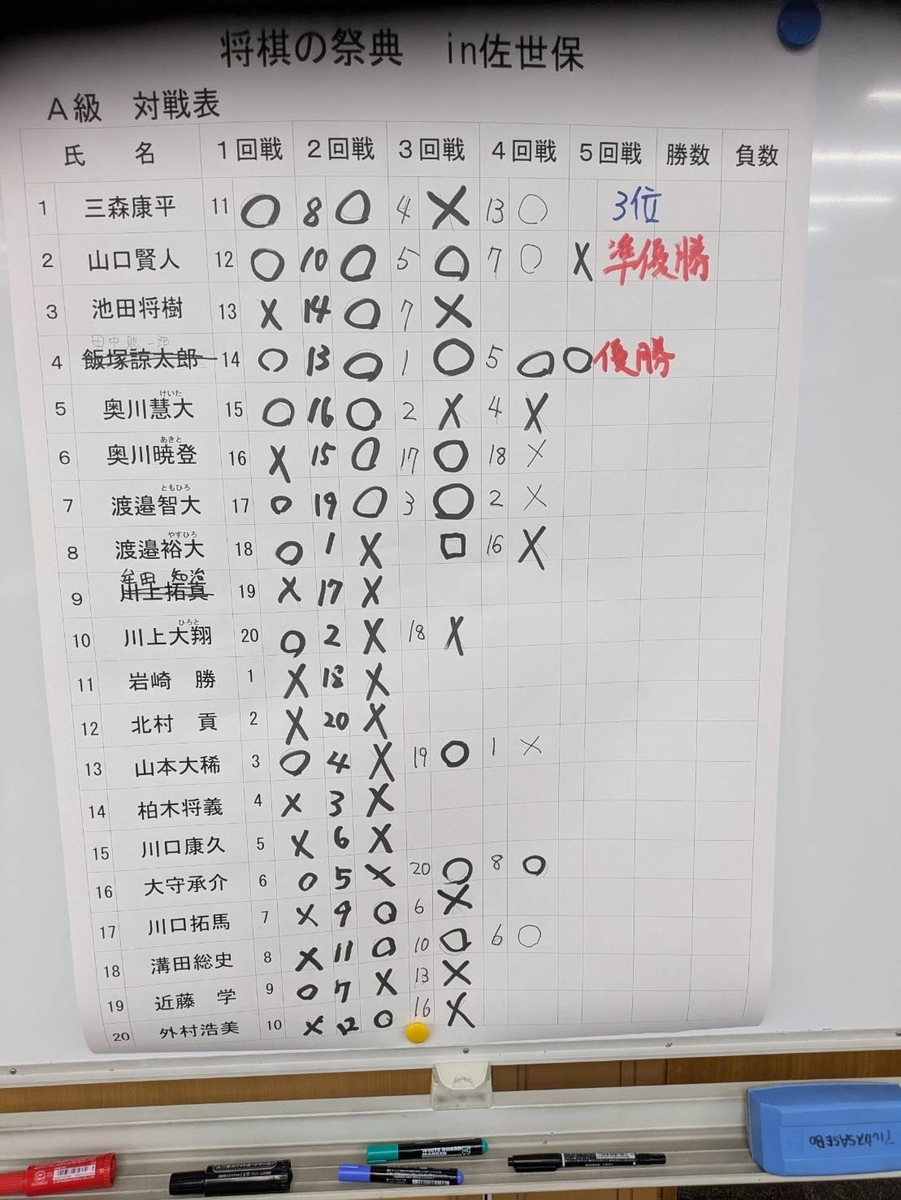 将棋の祭典 in佐世保
A級 対戦表
氏 名 1回戦 2回戦 3回戦 4回戦 5回戦 勝数 負数
1 三森康平 11 ○ 8 ○ 4 × 13 ○ 3位
2 山口賢人 12 ○ 10 ○ 5 ○ 7 ○ × 準優勝
3 池田将樹 13 × 14 ○ 7 ×
4 飯塚諒太郎 14 ○ 13 ○ 1 ○ 5 ○ ○ 優勝
けいた
5 奥川慧大 15 ○ 16 ○ 2 × 4 ×
あきと
6 奥川暁登 16 × 15 ○ 17 ○ 18 ×
ともひろ
7 渡邉智大 17 ○ 19 ○ 3 ○ 2 ×
やすひろ
8 渡邉裕大 18 ○ 1 × □ 16 ×
9 川上拓真 19 × 17 ×
ひろと
10 川上大翔 20 ○ 2 × 18 ×
11 岩崎 勝 1 × 18 ×
12 北村 貢 2 × 20 ×
13 山本大稀 3 ○ 4 × 19 ○ 1 ×
14 柏木将義 4 × 3 ×
15 川口康久 5 × 6 ×
16 大守承介 6 ○ 5 × 20 ○ 8 ○
17 川口拓馬 7 × 9 ○ 6 ×
18 溝田総史 8 × 11 ○ 10 ○ 6 ○
19 近藤 学 9 ○ 7 × 13 ×
20 外村浩美 10 × 12 ○ 16 ×
WHITE BOARD MARKER
アルカスSASEBO